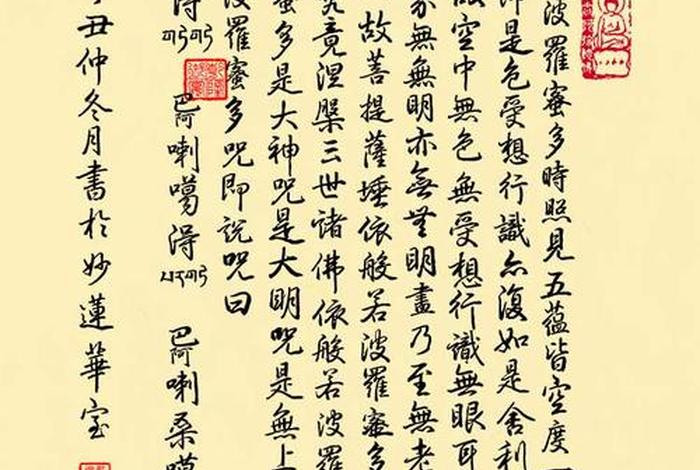 波羅蜜多時照見五蘊皆空度
即是色受想行識亦復如是舍利
故空中無色無受想行識無眼耳
亦無無明亦無無明盡乃至無老
故菩提薩埵依般若波羅蜜多
究竟涅槃三世諸佛依般若波羅
蜜多是大神咒是大明咒是無上
波羅蜜多咒即說咒曰
巴阿喇噶得 巴阿喇桑
丑仲冬月書於妙蓮華室